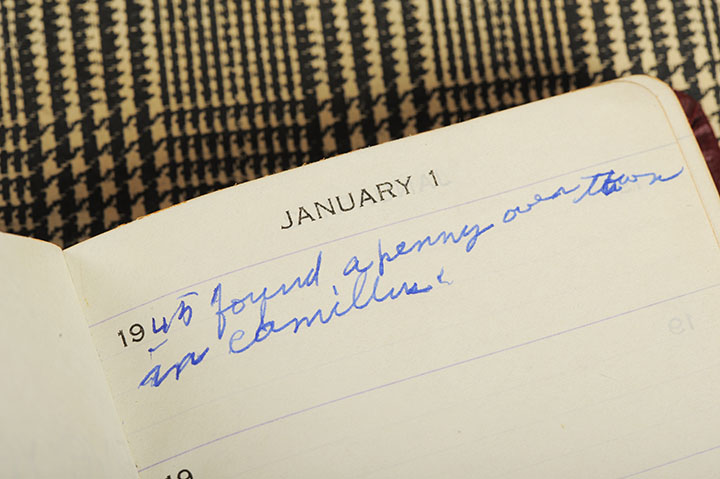 JANUARY 1
1945 found a penny over town
in Camillus.
19
19